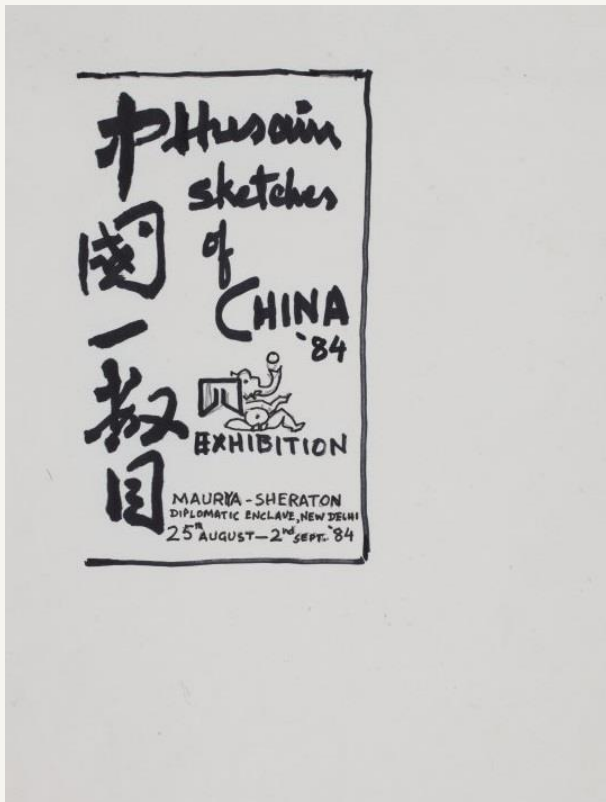 中國一数目
Husain
sketches
of
CHINA
'84
EXHIBITION
MAURYA - SHERATON
DIPLOMATIC ENCLAVE, NEW DELHI
25th AUGUST — 2nd SEPT. '84